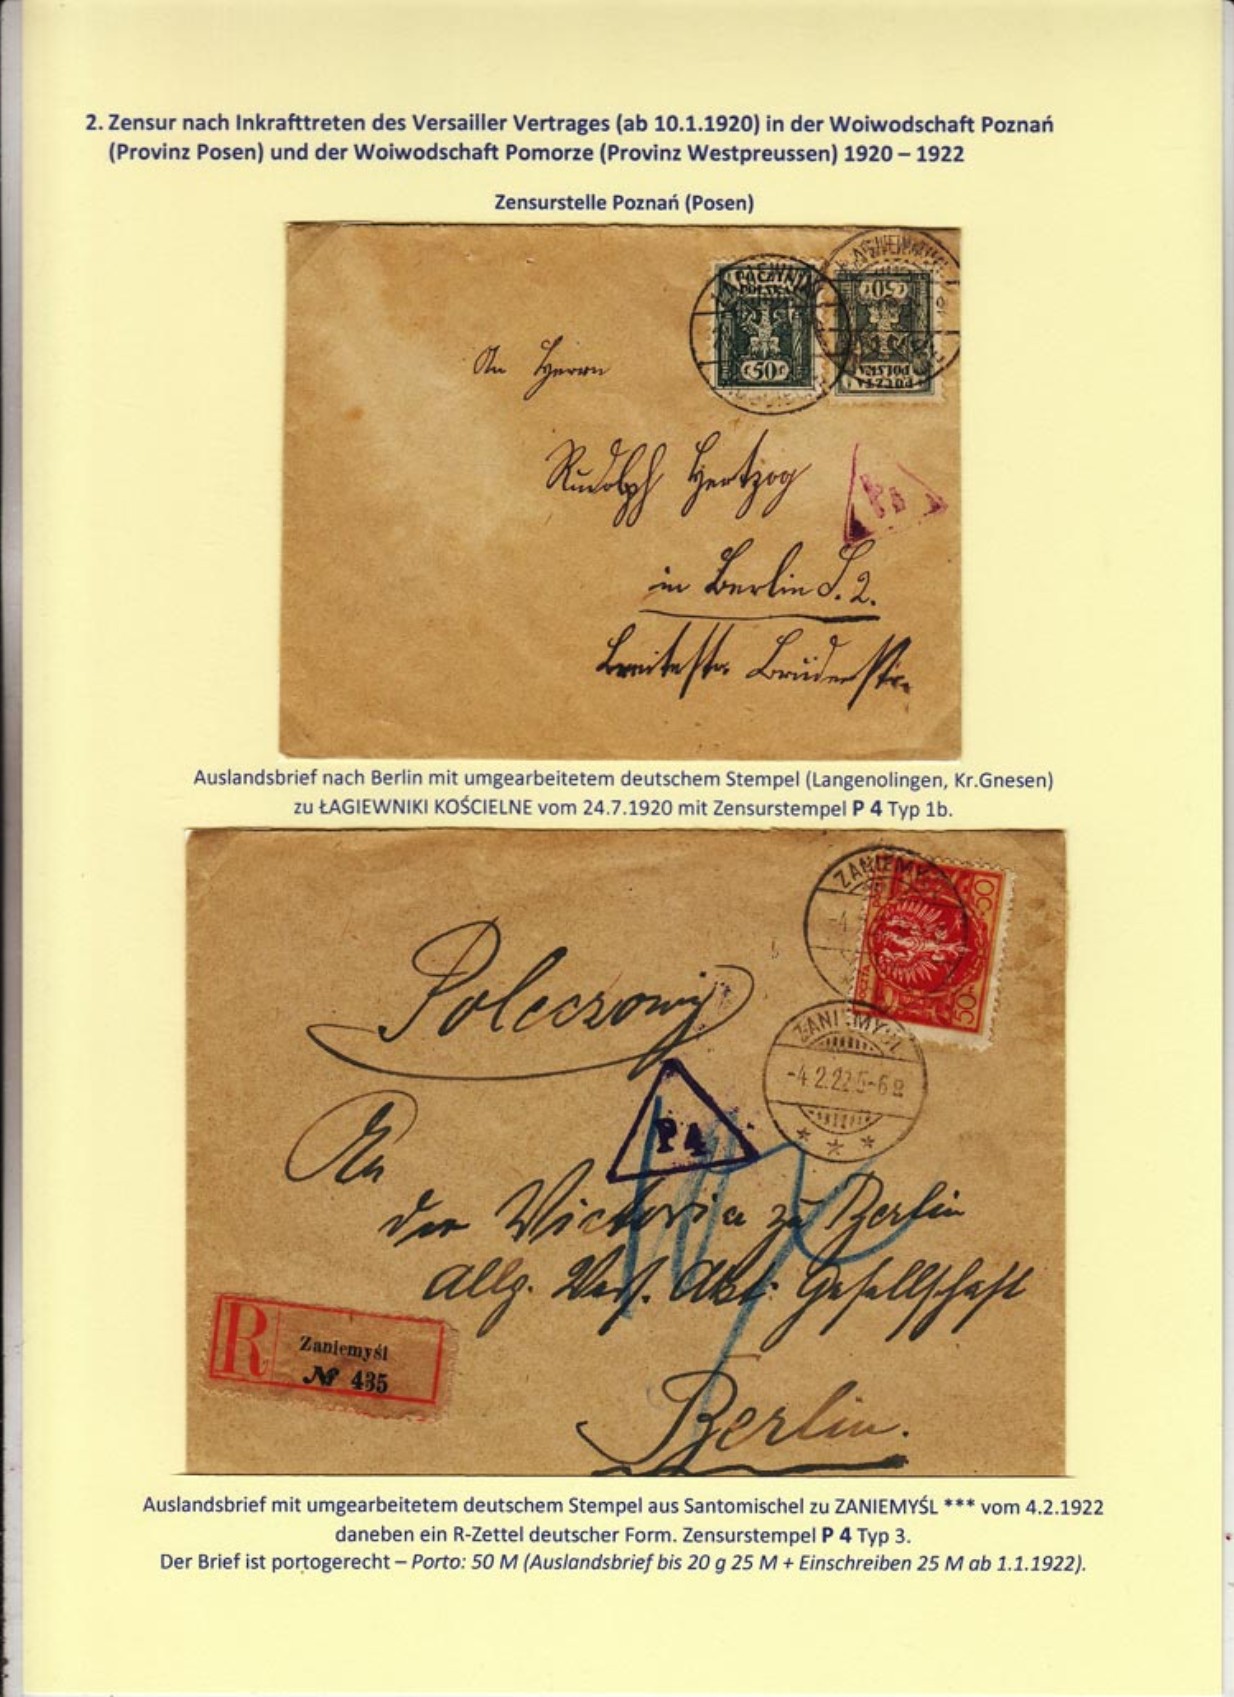 2. Zensur nach Inkrafttreten des Versailler Vertrages (ab 10.1.1920) in der Woiwodschaft Poznań
(Provinz Posen) und der Woiwodschaft Pomorze (Provinz Westpreussen) 1920 – 1922
Zensurstelle Poznań (Posen)
POCZTA
POLSKA
50
50
POLSKA
POCZTA
An Herrn
Rudolph Hertzog
P 4
in Berlin S. 2.
Breitestr. Brüderstr.
Auslandsbrief nach Berlin mit umgearbeitetem deutschem Stempel (Langenolingen, Kr.Gnesen)
zu ŁAGIEWNIKI KOŚCIELNE vom 24.7.1920 mit Zensurstempel P 4 Typ 1b.
50
50
ZANIEMYŚL
-4.2.22 5-6
* * *
Poleczony
P 4
An
der Victoria zu Berlin
Allg. Vers. Akt. Gesellschaft
R
Zaniemyśl
№ 435
Berlin.
Auslandsbrief mit umgearbeitetem deutschem Stempel aus Santomischel zu ZANIEMYŚL *** vom 4.2.1922
daneben ein R-Zettel deutscher Form. Zensurstempel P 4 Typ 3.
Der Brief ist portogerecht – Porto: 50 M (Auslandsbrief bis 20 g 25 M + Einschreiben 25 M ab 1.1.1922).